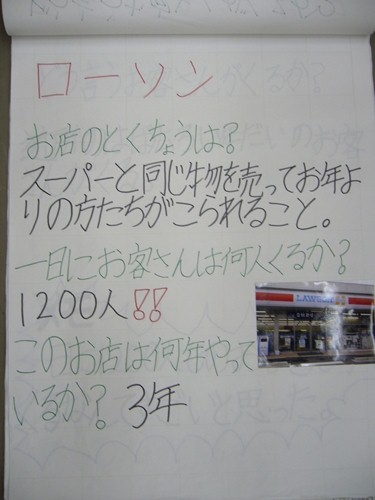 ローソン
お店のとくちょうは?
スーパーと同じ物を売ってお年よ
りの方たちがこられること。
一日にお客さんは何人くるか?
1200人!!
LAWSON
このお店は何年やって
いるか? 3年